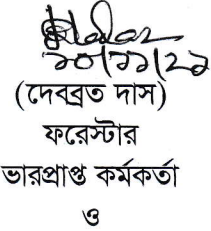 ২০/১১/২২
(দেবব্রত দাস)
ফরেস্টার
ভারপ্রাপ্ত কর্মকর্তা
ও